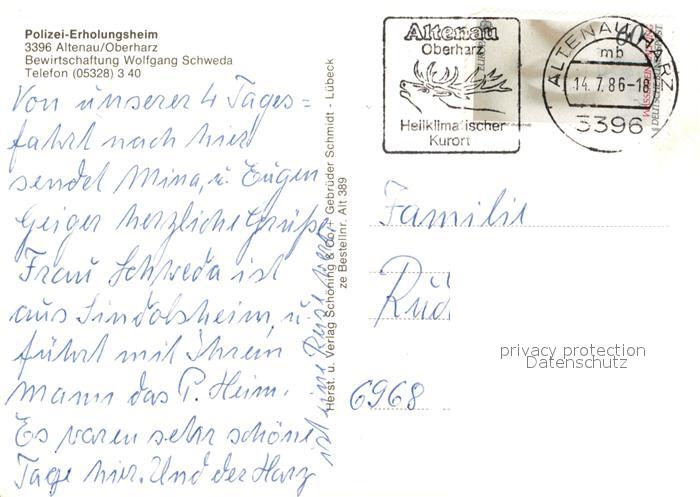 Polizei-Erholungsheim
3396 Altenau/Oberharz
Bewirtschaftung Wolfgang Schweda
Telefon (05328) 3 40
Von unserer 4 Tages=
fahrt nach hier
sendet Mina, u. Eugen
Geiger herzliche Grüße
Frau Schweda ist
aus Sindolsheim, u.
führt mit Ihrem
Mann das P. Heim.
Es waren sehr schöne
Tage hier. Und der Harz
ist eine Reise wert
Herst. u. Verlag Schöning & Co + Gebrüder Schmidt - Lübeck
ze Bestellnr. Alt 389
Altenau
Oberharz
Heilklimatischer
Kurort
ALTENAU HARZ
mb
14.7.86-18
3396
60
Familie
Rüd
6968
privacy protection
Datenschutz